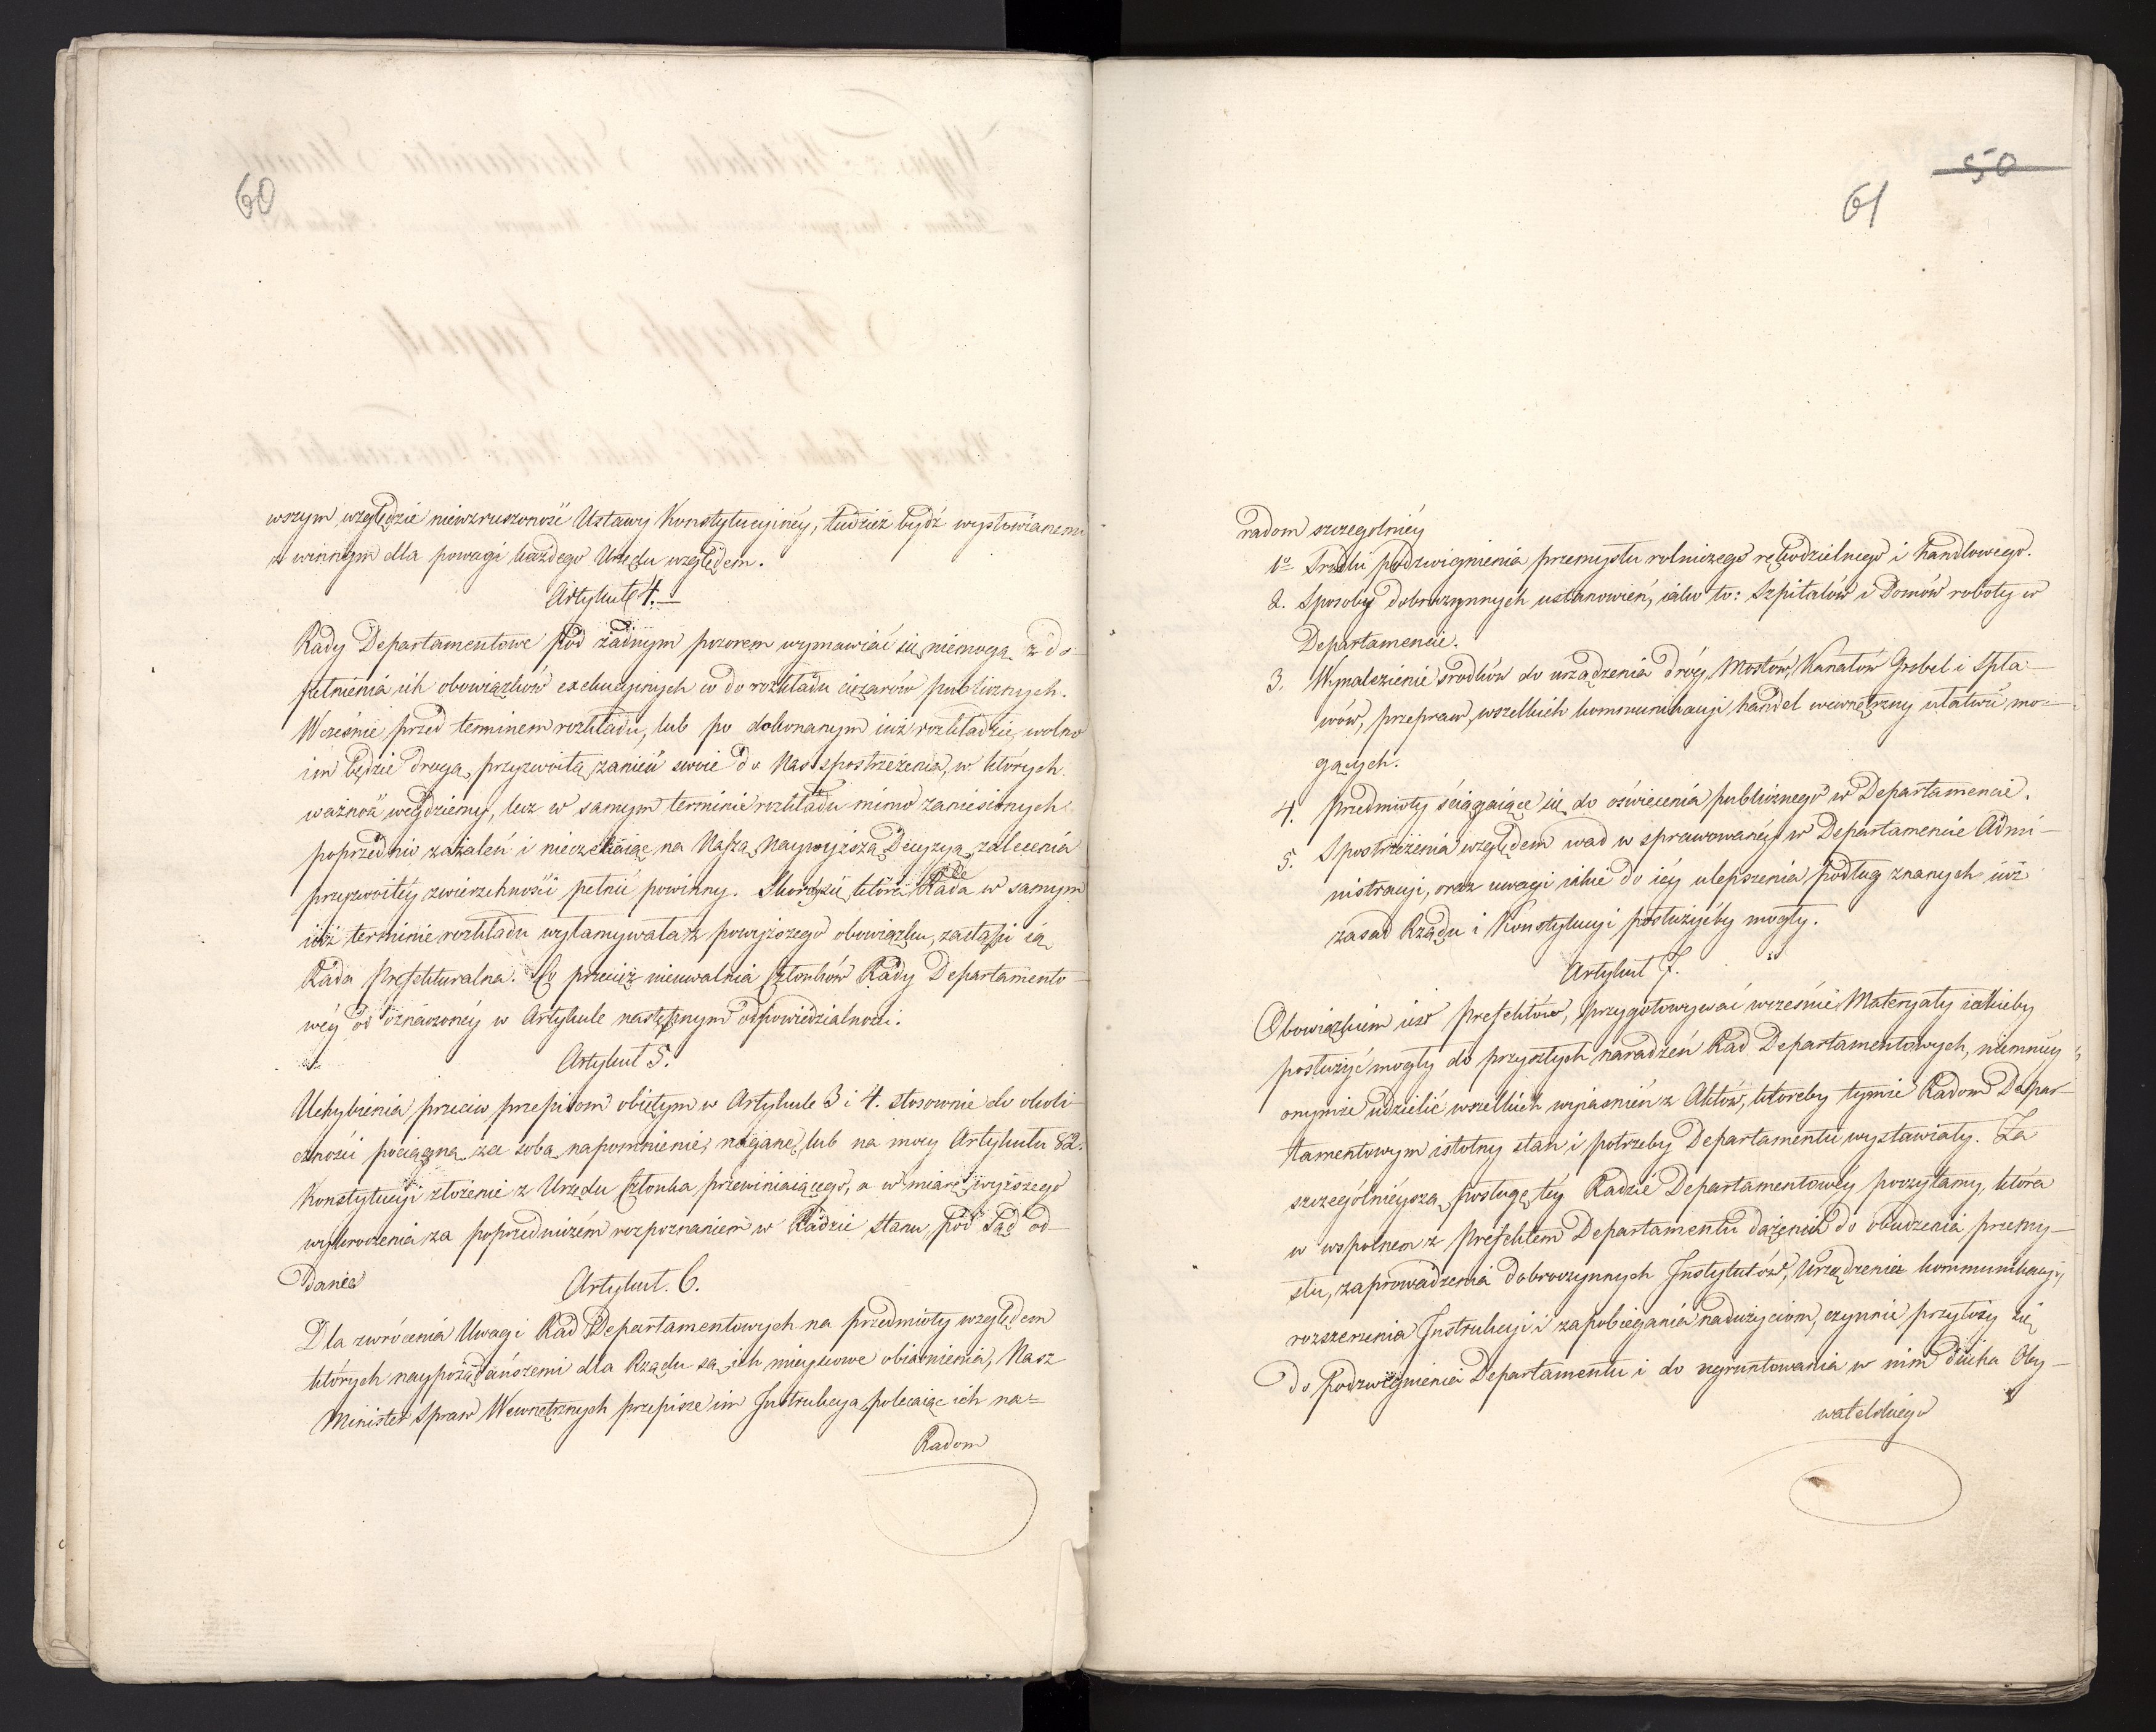 60
wszym względzie niewzruszoność Ustawy Konstytucyinéy, tudzież bydź wysłowianemi
z winnym dla powagi każdego Urzędu względem.
Artykuł 4.
Rady Departamentowe pod żadnym pozorem wymawiać się niemogą z do-
pełnienia ich obowiązków exekucyinych co do rozkładu ciężarów publicznych.
Wcześnie przed terminem rozkładu, lub po dokonanym iuż rozkładzie, wolno
im będzie drogą przyzwoitą zanieść swoie do Nas spostrzeżenia, w których
ważność weydziemy, lecz w samym terminie rozkładu mimo zaniesionych
poprzednio zażaleń i nieczekaiąc na Naszą Naywyższą Decyzyą, zalecenia
przyzwoitéy zwierzchności pełnić powinny. Skoroby się która Rada w samym
iuż terminie rozkładu wyłamywała z powyższego obowiązku, zastąpi ią
Rada Prefekturalna. Co przecież nieuwalnia Członków Rady Departamento-
wéy od oznaczonéy w Artykule następnym odpowiedzialności.
Artykuł 5.
Uchybienia przeciw przepisom obiętym w Artykule 3 i 4. stosownie do okoli-
czności pociągną za sobą napomnienie, naganę, lub na mocy Artykułu 82.
Konstytucyi złożenie z Urzędu Członka przewiniaiącego, a w miarę wyższego
wykroczenia za poprzedniczém rozpoznaniem w Radzie Stanu, pod Sąd od-
danie
Artykuł. 6.
Dla zwrócenia Uwagi Rad Departamentowych na przedmioty względem
których naypożądańszemi dla Rządu są ich mieyscowe obiaśnienia, Nasz
Minister Spraw Wewnętrznych przepisze im Instrukcyą polecaiąc ich na=
Radom
50
61
radom szczególniéy
1o Srzodki podzwignienia przemysłu rolniczego rękodzielnego i handlowego.
2. Sposoby dobroczynnych ustanowień, iako to: Szpitalów i Domów roboty w
Departamencie.
3. Wynalezienie srodków do urządzenia dróg, Mostów, Kanałów Grobel i Spła-
wów, przepraw, wszelkich kommunikacyi handel wewnętrzny ułatwić mo-
gących.
4. Przedmioty ściągaiące się do oświecenia publicznego w Departamencie.
5. Spostrzeżenia względem wad w sprawowanéy w Departamencie Admi-
nistracyi, oraz uwagi iakie do iéy ulepszenia podług znanych iuż
zasad Rządu i Konstytucyi posłużyćby mogły.
Artykuł 7.
Obowiązkiem iest Prefektów, przygotowywać wcześnie Materyały iakieby
posłużyć mogły do przyszłych naradzeń Rad Departamentowych, niemniéy
onymże udzielić wszelkich wyiaśnień z Aktów, któreby tymże Radom Depar-
tamentowym istotny stan i potrzeby Departamentu wystawiały. Za
szczególnieyszą posługę téy Radzie Departamentowéy poczytamy, która
w wspolnem z Prefektem Departamentu dążeniu do obudzenia przemy-
słu, zaprowadzenia dobroczynnych Instytutów, Urządzenia kommunikacyi,
rozszerzenia Instrukcyi i zapobiegania nadużyciom, czynnie przyłoży się
do podzwignienia Departamentu i do ugruntowania w nim ducha Oby-
watelskiego